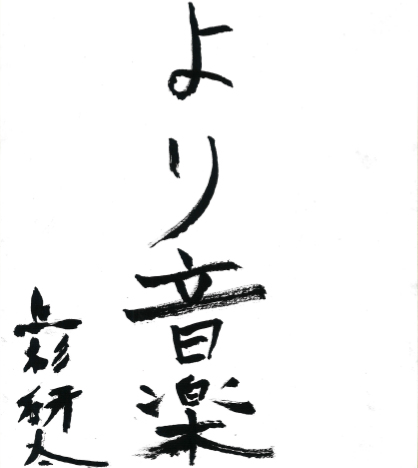 より音楽
上杉研太